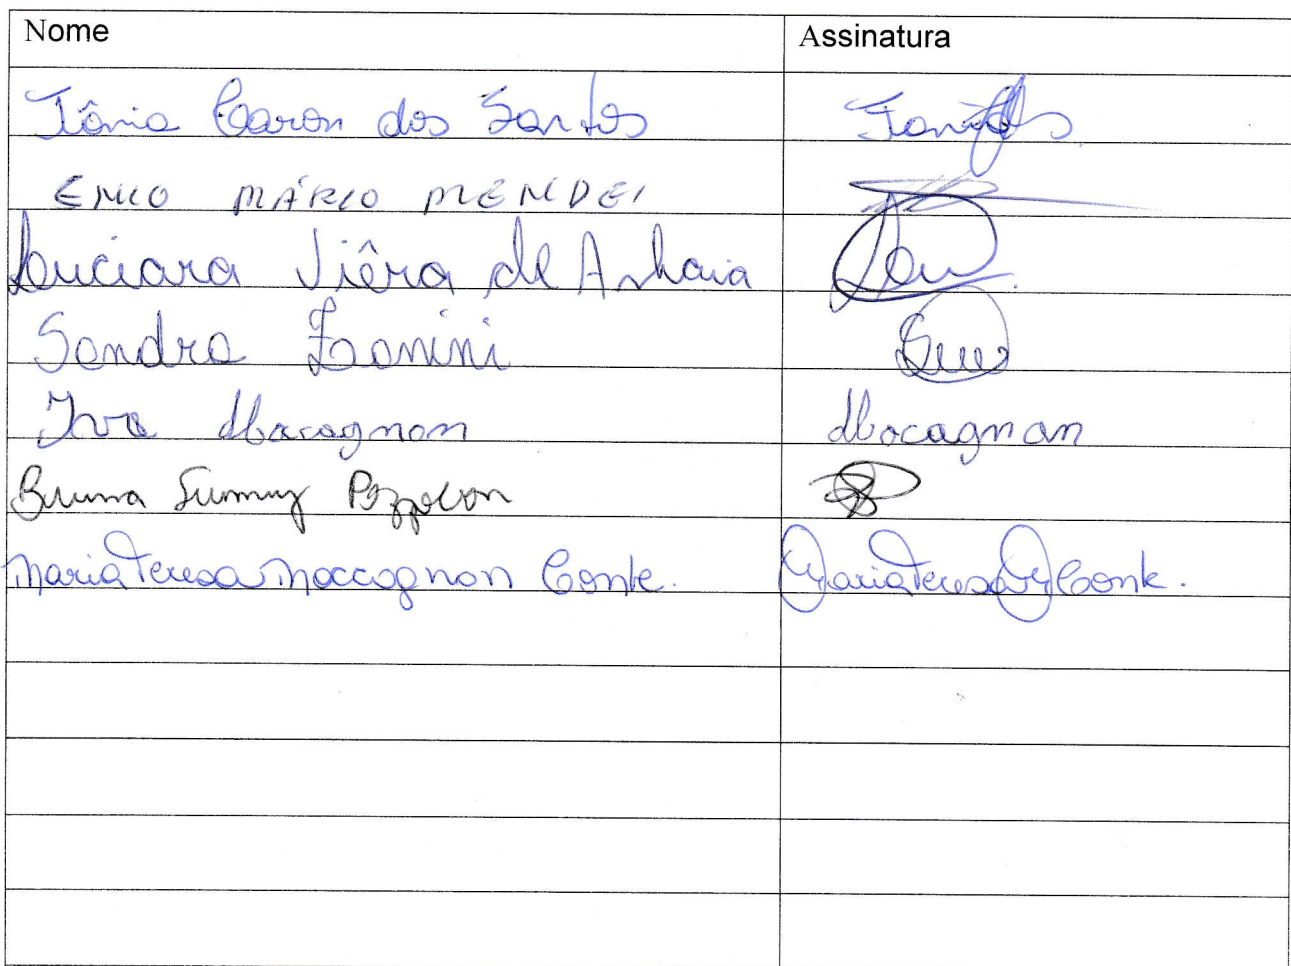 Nome Assinatura
Tânia Caron dos Santos
ENIO MÁRIO MENDES
Luciara Viêra de Anhaia
Sandra Zanini
Iva Macagnan Macagnan
Bruna Pozzebon
Maria Teresa Maccagnan Conte. Maria Teresa M Conte.